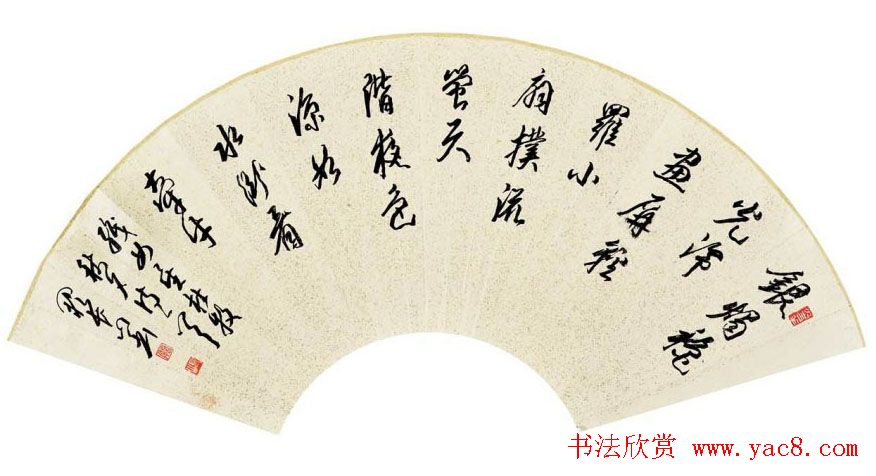 銀燭穐
光冷
畫屏輕
羅小
扇撲流
螢天
階夜色
涼如
水卧看
牽牛
織女星杜牧
书法欣赏 www.yac8.com